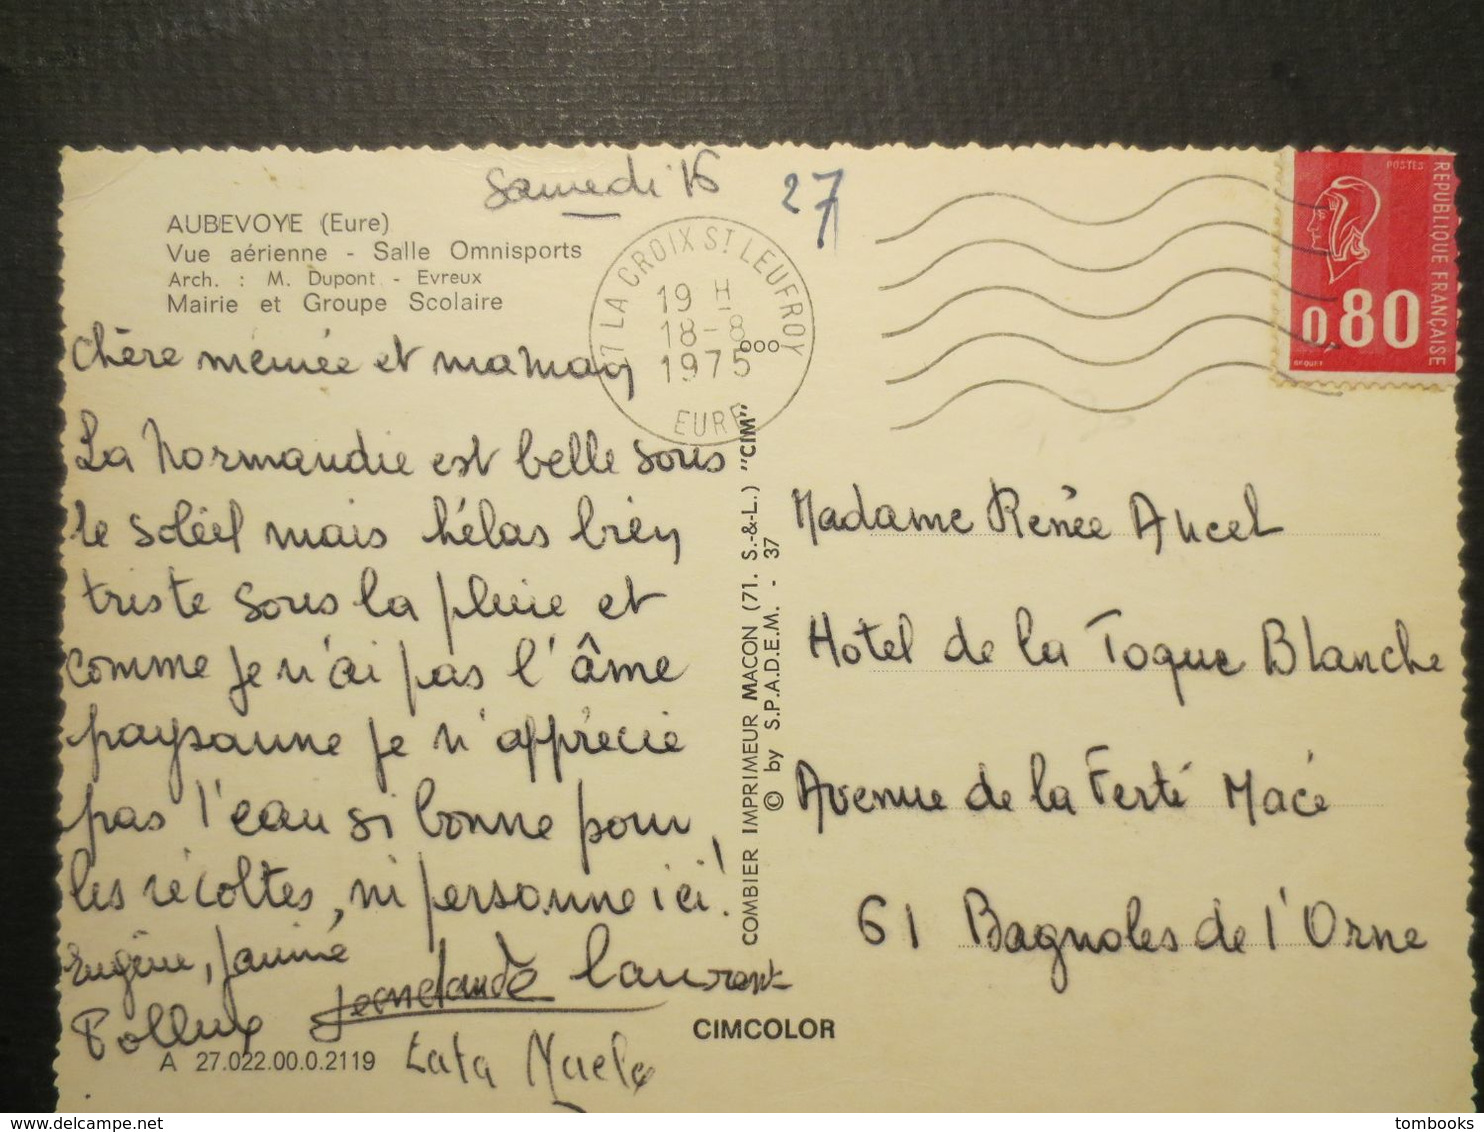 Samedi 16
27
AUBEVOYE (Eure)
Vue aérienne - Salle Omnisports
Arch. : M. Dupont - Evreux
Mairie et Groupe Scolaire
27 LA CROIX ST LEUFROY
19 H
18-8
1975
EURE
POSTES
REPUBLIQUE FRANÇAISE
0,80
BEQUET
Chère mémée et maman
La Normandie est belle sous
le soleil mais hélas bien
triste sous la pluie et
comme je n'ai pas l'âme
paysanne je n'apprécie
pas l'eau si bonne pour
les récoltes, ni personne ici!
Eugène, Janine
Pollux Jeanclaude Laurent
Tata
COMBIER IMPRIMEUR MACON (71. S.-&-L.) "CIM"
© by S.P.A.D.E.M. - 37
Madame Renée Ancel
Hotel de la Toque Blanche
Avenue de la Ferté Macé
61 Bagnoles de l'Orne
CIMCOLOR
A 27.022.00.0.2119
tombooks